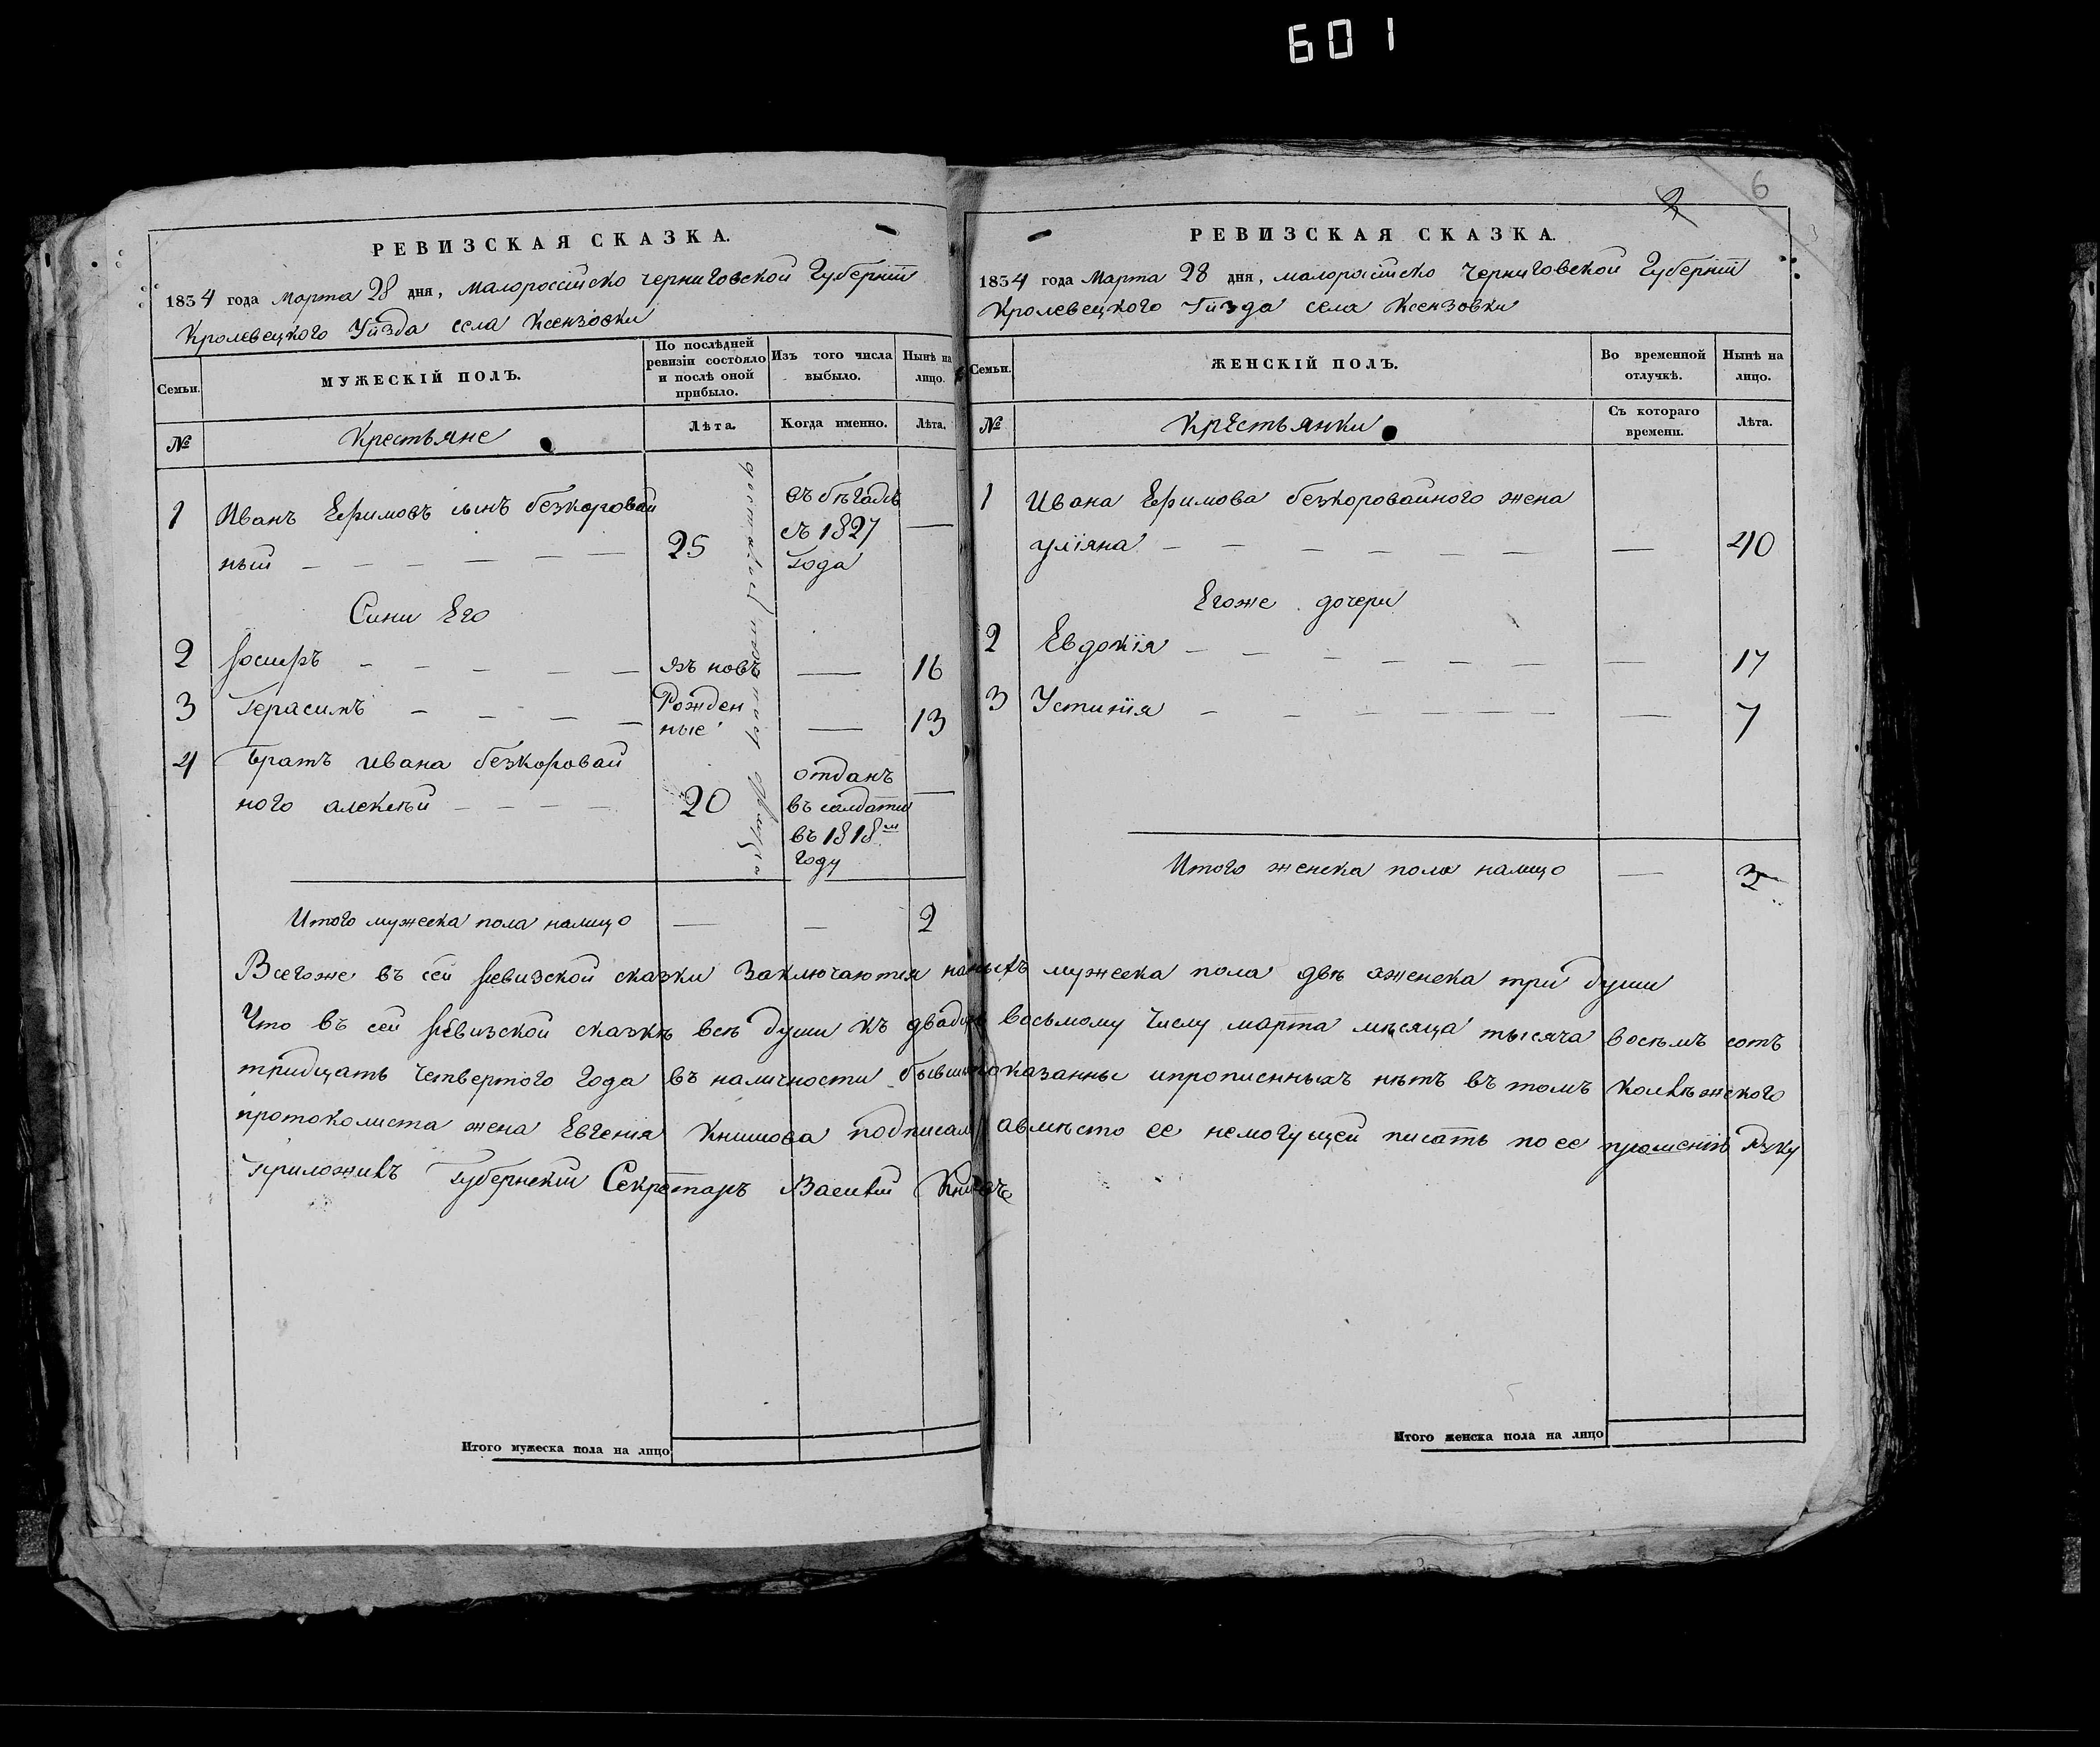 601
РЕВИЗСКАЯ СКАЗКА.
1834 года Марта 28 дня, малороссійско черниговской Губерніи
Кролевецкого Уѣзда села Ксензовки
Семьи.
МУЖЕСКІЙ ПОЛЪ.
По послѣдней
ревизіи состояло
и послѣ оной
прибыло.
Изъ того числа
выбыло.
Нынѣ на
лицо.
№
Крестьяне
Лѣта.
Когда именно.
Лѣта.
1 Иванъ Ефимовъ сынъ безкоровай
ный — — — — — 25
въ бѣгахъ
съ 1827
года —
Сини Его
2 Іосифъ — — — — — 16
3 Герасимъ — — — — Рожден
ные — 13
4 Братъ ивана безкоровай
ного алексѣй — — — — 20
отданъ
въ салдати
въ 1818м
году —
Итого мужеска пола налицо — — 2
6
РЕВИЗСКАЯ СКАЗКА.
1834 года Марта 28 дня, малоросийско Черниговской Губерніи
Кролевецкого Уѣзда села Ксензовки
Семьи.
ЖЕНСКІЙ ПОЛЪ.
Во временной
отлучкѣ.
Нынѣ на
лицо.
№
Крестьянки
Съ котораго
времени.
Лѣта.
1 Ивана Ефимова безкоровайного жена
уліяна — — — — — — — 40
Егоже дочери
2 Евдокія — — — — — — — 17
3 Устинія — — — — — — 7
Итого женска пола налицо — 3
Всегоже въ сей ревизской сказки заключаются мужеска пола двѣ аженска три души
Что въ сей ревизской сказкѣ всѣ души къ двадцать восьмому числу марта мѣсяца тысяча восемъ сотъ
тридцать четвертого года въ наличности бывшие показанны ипрописнныхъ нѣтъ втомъ
протоколиста жена Евгенія Книшова подписал авмѣсто ее немогущей писать по ее прошенію руку
приложилъ Губернскій Секретаръ Василій
Итого мужеска пола на лицо
Итого женска пола на лицо